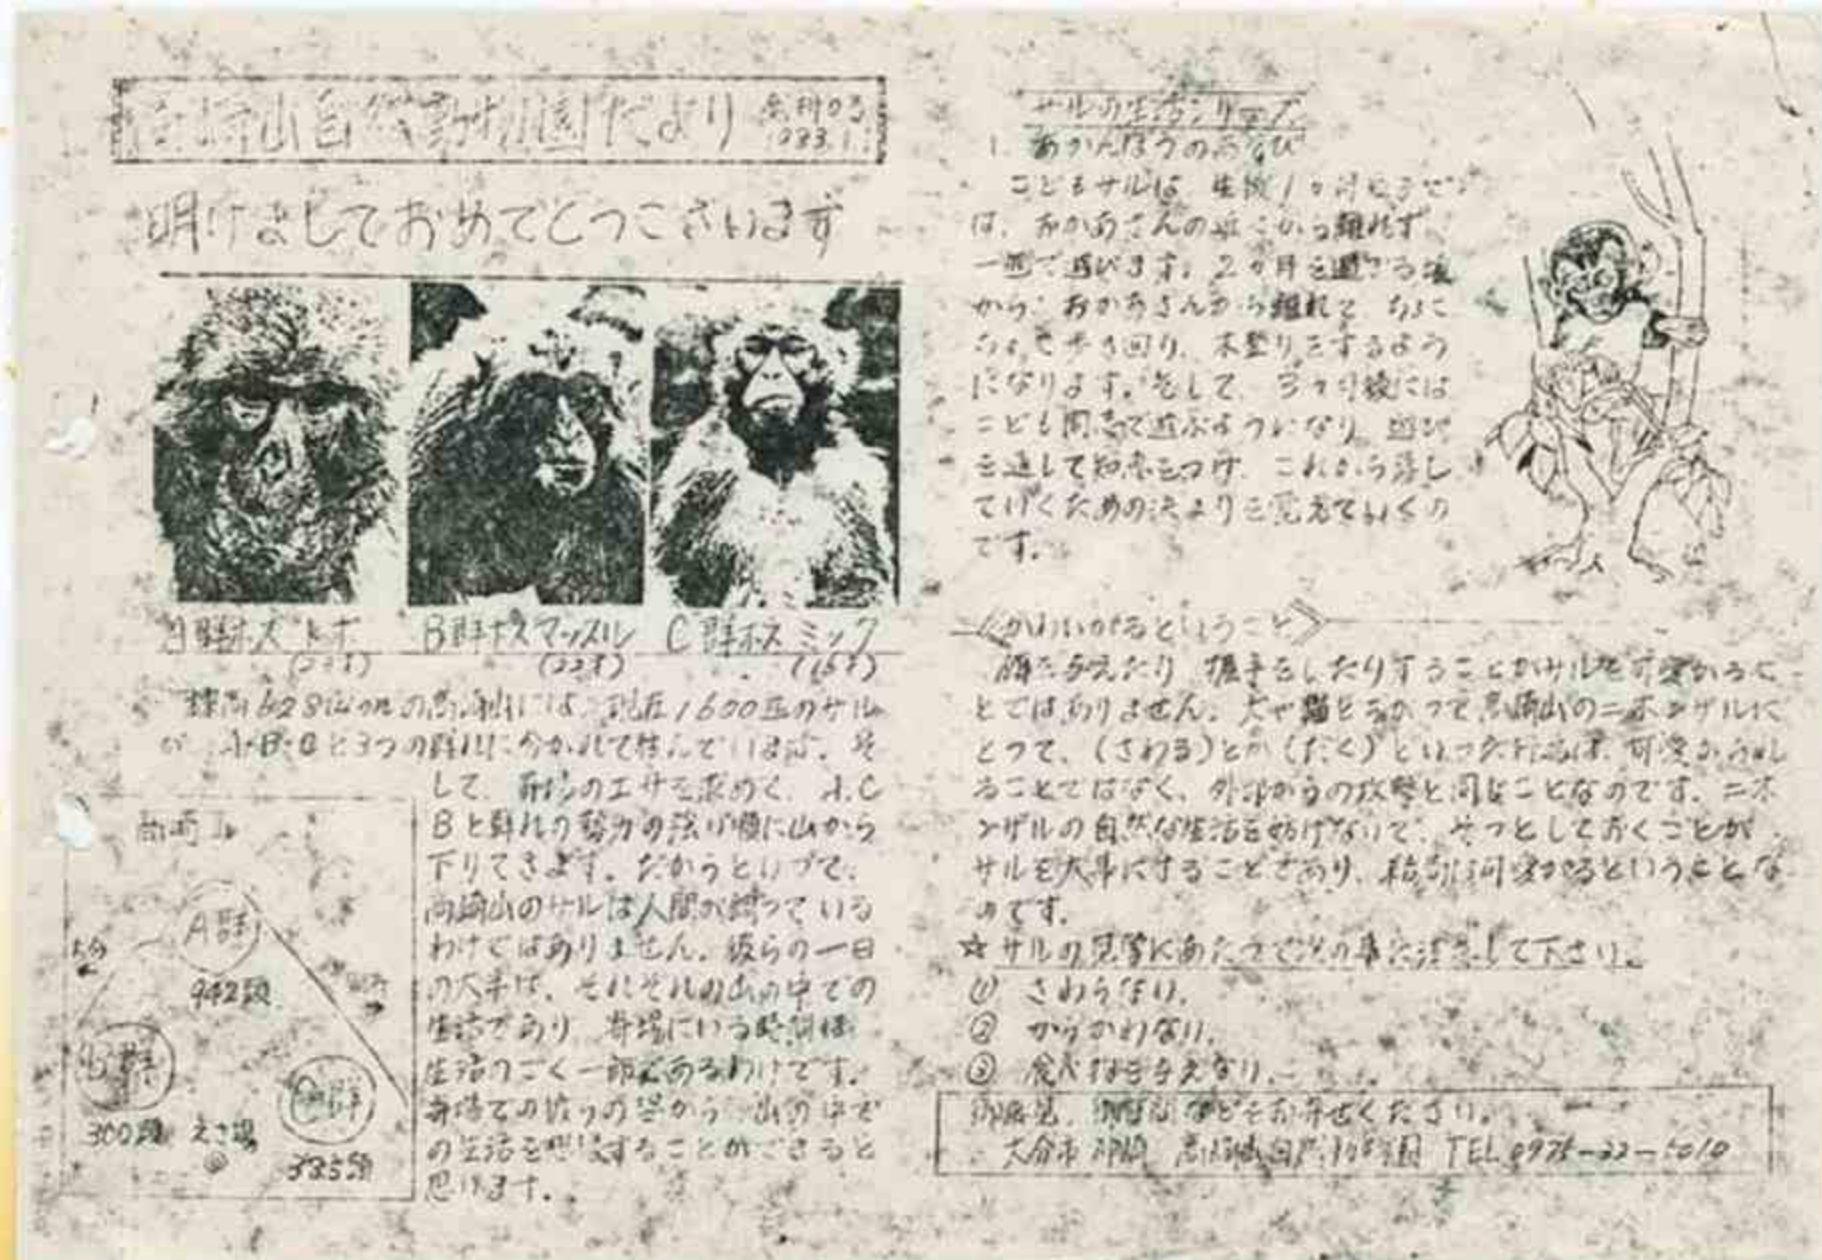 高崎山自然動物園だより
1983.1.1
明けましておめでとうございます
A群ボス
B群ボスマッスル
C群ボスミック
(22才)
(16才)
標高628mの高崎山には、現在1600匹のサル
が、A・B・Cと3つの群れに分かれて住んでいます。そ
して、寄場のエサを求めて、A.C
Bと群れの勢力の強い順に山から
下りてきます。だからといって、
高崎山のサルは人間が飼っている
わけではありません。彼らの一日
の大半は、それぞれの山の中での
生活であり、寄場にいる時間は
生活のごく一部であるわけです。
寄場での彼らの姿から、山の中で
の生活を想像することができると
思います。
高崎山
大分
A群
942頭
B群
300頭
えさ場
C群
335頭
サルの生活シリーズ
1. あかんぼうのあそび
こどもサルは、生後1か月ぐらいで
は、おかあさんの近くから離れず、
で遊びます。2か月を過ぎる頃
から、おかあさんから離れて、
歩き回り、木登りをするよう
になります。そして、3ヶ月後には
こども同志で遊ぶようになり、遊び
を通して知恵をつけ、これから暮し
ていくためのきまりを覚えていくの
です。
《かわいがるということ》
餌を与えたり、握手をしたりすることがサルを可愛がるこ
とではありません。犬や猫とちがって高崎山のニホンザルに
とって、(さわる)とか(だく)といった行為は、可愛がられ
ることではなく、外部からの攻撃と同じことなのです。ニホ
ンザルの自然な生活を妨げないで、そっとしておくことが
サルを大事にすることであり、結局は可愛がるということな
のです。
☆サルの見学にあたって次の事に注意して下さい。
① さわらない。
② からかわない。
③ 食べ物を与えない。
御意見、御感想などをお寄せください。
大分市神崎 高崎山自然動物園 TEL 0975-32-5010